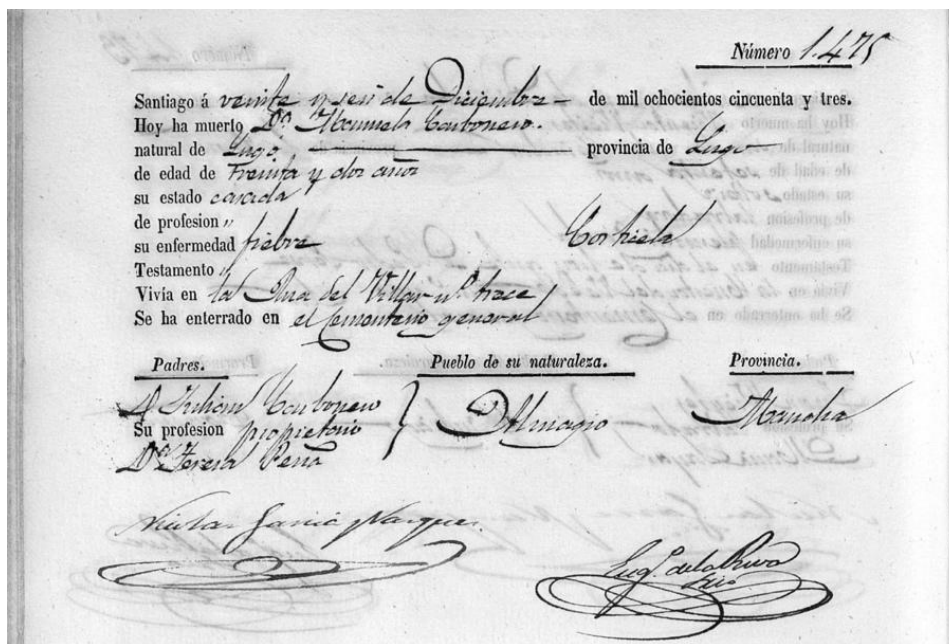 Número 1.475
Santiago á veinte y seis de Diciembre de mil ochocientos cincuenta y tres.
Hoy ha muerto Dª. Manuela Carbonero.
natural de Lugo provincia de Lugo
de edad de Treinta y dos años
su estado casada
de profesion „
su enfermedad fiebre
Testamento „
Vivía en la Rua del Villar nº. trece
Se ha enterrado en el Cementerio general
Padres. Pueblo de su naturaleza. Provincia.
D Julian Carbonero
Su profesion propietario Almagro Mancha
Dª Teresa Peña
Garcia Vazquez
de la Riva